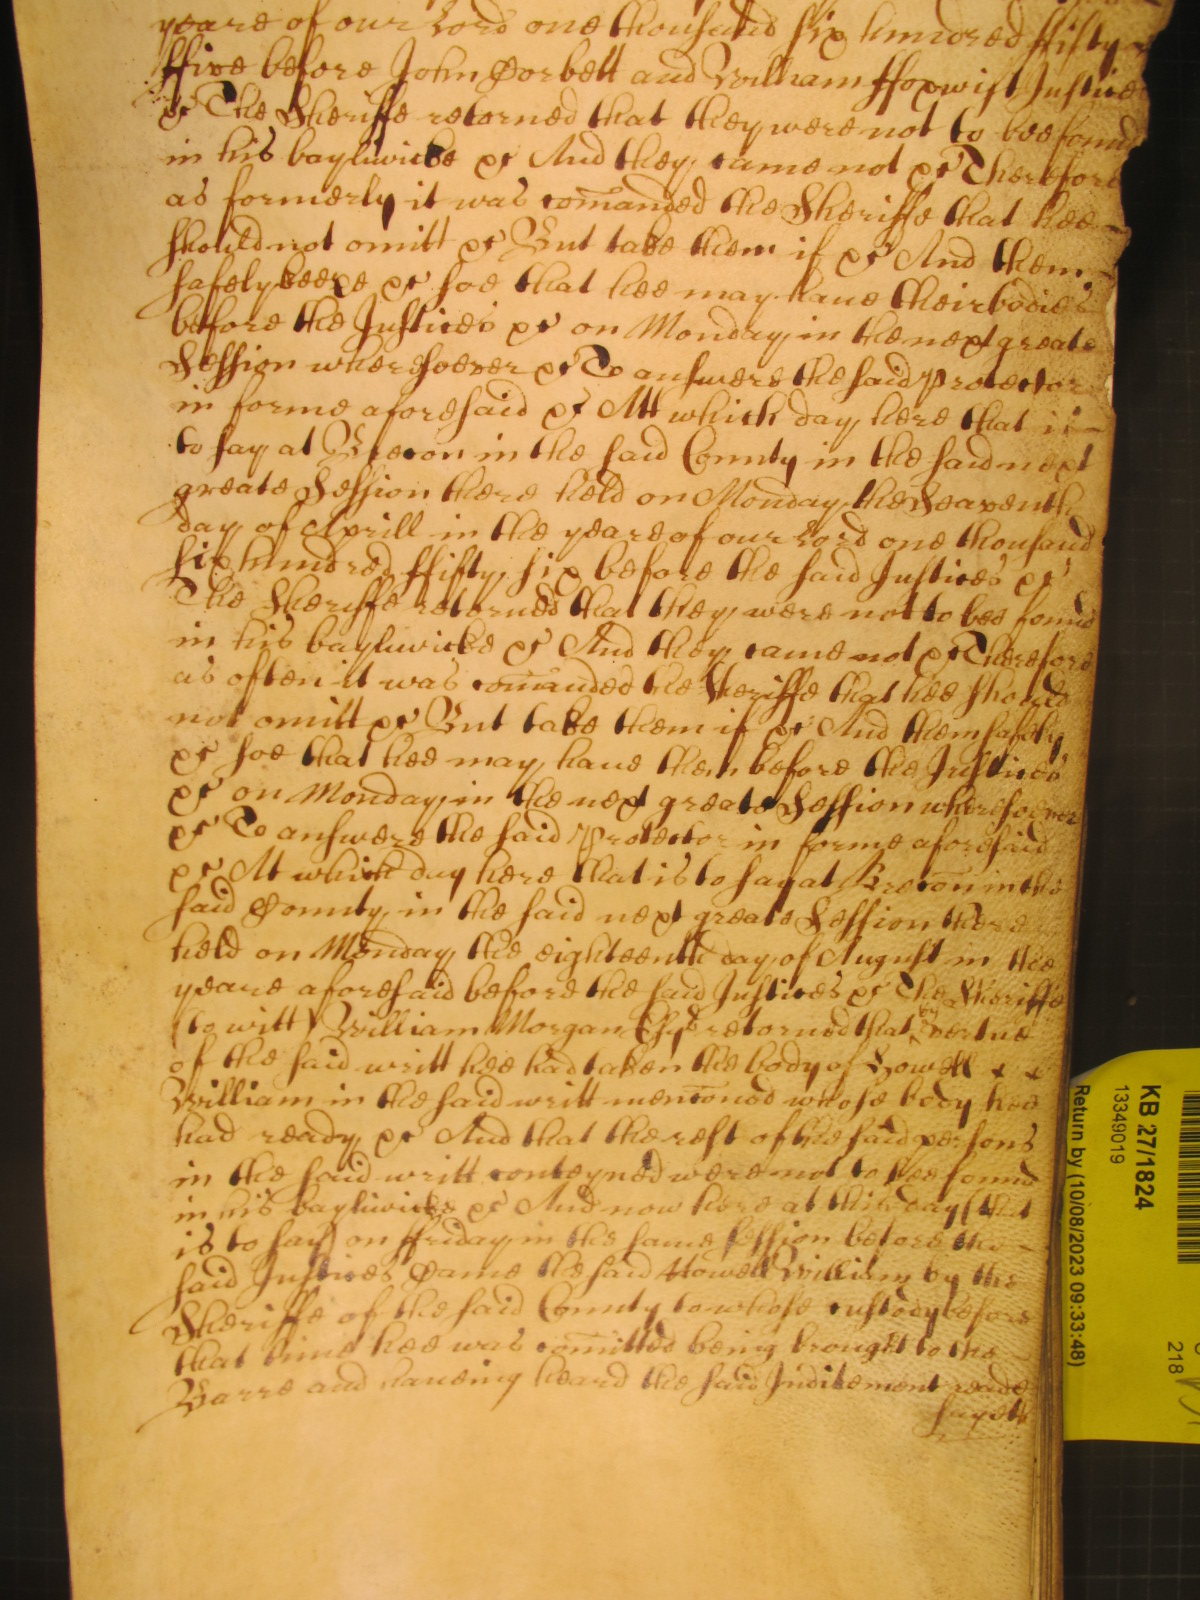 yeare of our Lord one thousand six hundred ffifty
ffive before John Corbett and William ffoxwist Justices
&c The Sheriffe retorned that they were not to bee found
in his bayliwicke &c And they came not &c Therefore
as formerly it was comanded the Sheriffe that hee
should not omitt &c But take them if &c And them
safely keepe &c soe that hee may haue their bodies
before the Justices &c on Monday in the next greate
Session wheresoever &c To answere the said Protector
in forme aforesaid &c Att which day here that is
to say at Brecon in the said County in the said next
greate Session there held on Monday the Seaventh
day of Aprill in the yeare of our Lord one thousand
six hundred ffifty six before the said Justices &c
The Sheriffe retorned that they were not to bee found
in his bayliwicke &c And they came not &c Therefore
as often it was comanded the Sheriffe that hee should
not omitt &c But take them if &c And them safely
&c soe that hee may haue them before the Justices
&c on Monday in the next greate Session wheresoever
&c To answere the said Protector in forme aforesaid
&c At which day here that is to say at Brecon in the
said County in the said next greate Session there
held on Monday the eighteenth day of August in the
yeare aforesaid before the said Justices &c The Sheriffe
(to witt) William Morgan Esqr retorned that by vertue
of the said writt hee had taken the body of Howell
William in the said writt menconed whose body hee
had ready &c And that the rest of the said persons
in the said writt conteyned were not to bee found
in his bayliwicke &c And now here at this day (that
is to say) on ffriday in the same Session before the
said Justices Came the said Howell William by the
Sheriffe of the said County to whose custody before
that time hee was comitted being brought to the
Barre and haueing heard the said Inditement reade
sayeth
KB 27/1824
13349019
Return by (10/08/2023 09:33:48)
218